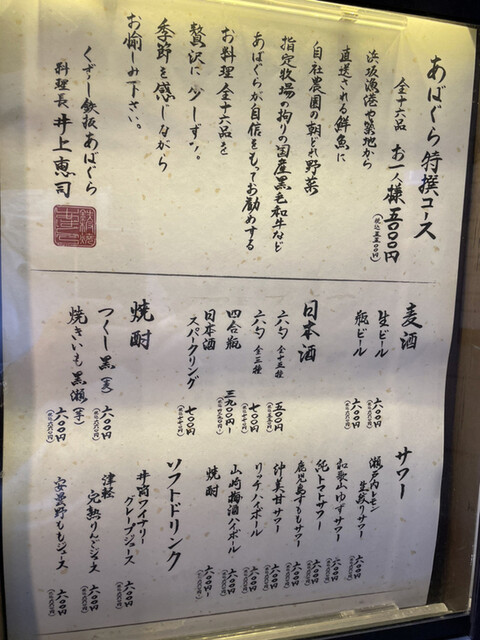 あばぐら特撰コース
全十六品 お一人様 五〇〇〇円
(税込五五〇〇円)
浜坂漁港や築地から
直送される鮮魚に
自社農園の朝どれ野菜
指定牧場の拘りの国産黒毛和牛など
あばぐらが自信をもってお勧めする
お料理 全十六品を
贅沢に少しずつ。
季節を感じながら
お愉しみ下さい。
くずし鉄板あばぐら
料理長 井上恵司
麦酒
生ビール 六〇〇円
瓶ビール 六〇〇円
日本酒
六勺 全十五種 五〇〇円
六勺 全三種 七〇〇円
四合瓶 三九〇〇円〜
日本酒
スパークリング 七〇〇円
焼酎
つくし黒(麦) 六〇〇円
焼きいも黒瀬(芋) 六〇〇円
サワー
瀬戸内レモン
生絞りサワー 六〇〇円
和歌山ゆずサワー 六〇〇円
純トマトサワー 六〇〇円
鹿児島すももサワー 六〇〇円
沖美甘サワー 六〇〇円
リッチハイボール 六〇〇円
山崎梅酒ハイボール 六〇〇円
焼酎 六〇〇円
ソフトドリンク
井筒ワイナリー
グレープジュース 六〇〇円
津軽
完熟りんごジュース 六〇〇円
安曇野ももジュース 六〇〇円